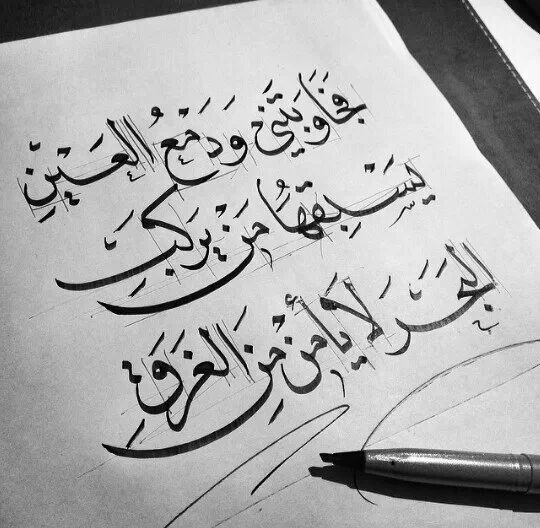 فَجَاوَبَتْنِي وَدَمْعُ العَيْنِ
يَسْبِقُهَا مَنْ يَركَبَ
البَحَرَ لَا يَأمن مِنَ الغَرَقِ